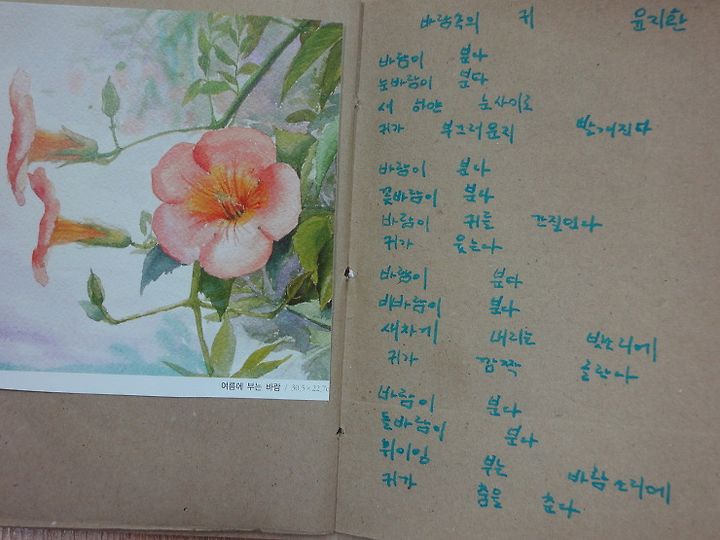 여름에 부는 바람 / 30.5×22.7c
바람속의 귀 윤지환
바람이 분다
눈바람이 분다
새 하얀 눈사이로
귀가 부끄러운지 빨개진다
바람이 분다
꽃바람이 분다
바람이 귀를 간질인다
귀가 웃는다
바람이 분다
비바람이 분다
새차게 내리는 빗소리에
귀가 깜짝 놀란다
바람이 분다
돌바람이 분다
위이잉 부는 바람소리에
귀가 춤을 춘다